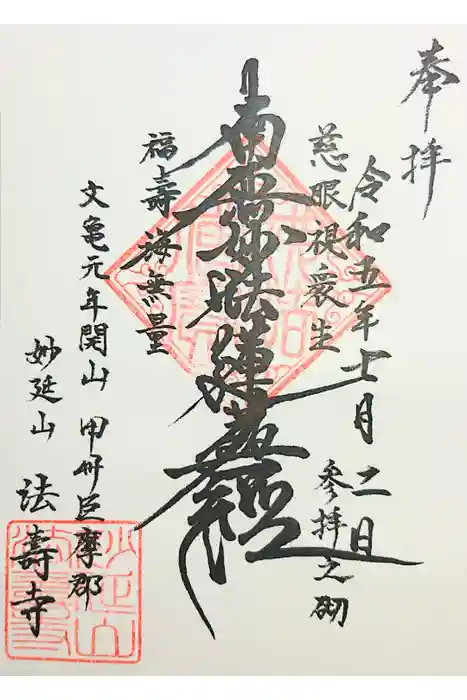 奉拝
令和五年七月二日
参拝之砌
慈眼視衆生
南無妙法蓮華経
福壽海無量
文亀元年開山 甲州巨摩郡
妙延山 法壽寺